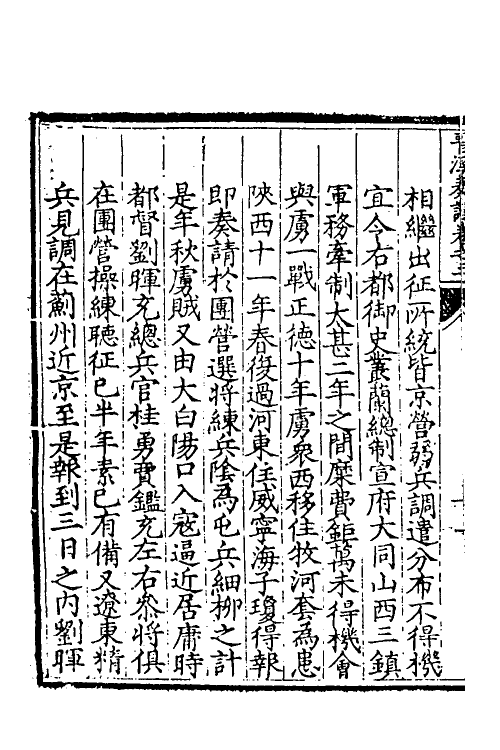 相繼出征所統皆京營弱兵調遣分布不得機
宜今右都御史叢蘭總制宣府大同山西三鎮
軍務牽制太甚二年之間糜費鉅萬未得機會
與虜一戰正德十年虜衆西移住牧河套為患
陝西十一年春復過河東住威寧海子瓊得報
即奏請於團營選將練兵陰為屯兵細柳之計
是年秋虜賊又由大白陽口入寇逼近居庸時
都督劉暉充總兵官桂勇賈鑑充左右參將俱
在團營操練聽征已半年素已有備又遼東精
兵見調在薊州近京至是報到三日之內劉暉